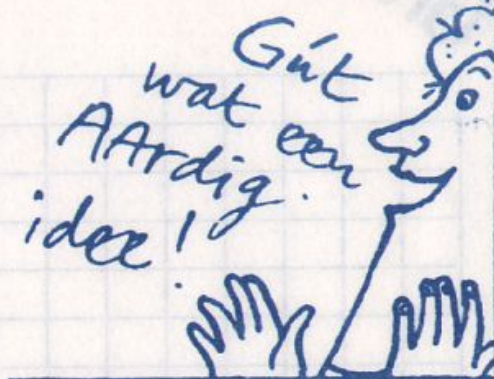 Gút
wat een
AArdig.
idee!